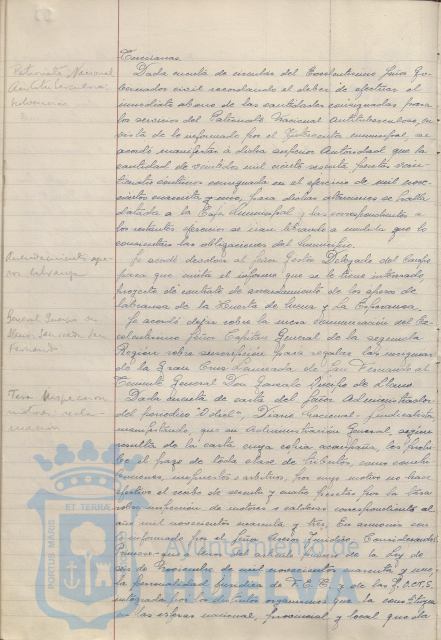 Patronato Nacional
Antituberculoso
Subvención
Dada cuenta de circular del Excelentísimo Señor Go-
bernador civil recordando el deber de efectuar el
inmediato abono de las cantidades consignadas para
los servicios del Patronato Nacional Antituberculoso, en
vista de lo informado por el Interventor municipal, se
acordó manifestar a dicha superior Autoridad que la
cantidad de veintidós mil ciento sesenta pesetas
céntimos consignada en el ejercicio de mil nove-
cientos cuarenta y uno, para dichas atenciones se halla
a la Caja Municipal y las correspondientes a
los restantes ejercicios se irán librando a medida que lo
consientan las obligaciones del Municipio.
Arrendamientos
labranza
Se acordó devolver al Señor Gestor Delegado del Campo
para que emita el informe que se le tiene interesado,
proyecto de contrato de arrendamiento de los
labranza de la Huerta de y la Esperanza.
General Queipo de
Llano San
Fernando
Se acordó dejar sobre la mesa comunicación del Ex-
celentísimo Señor Capitán General de la segunda
Región sobre suscripción para regalar las insignias
de la Gran Cruz Laureada de San Fernando al
Teniente General Don Gonzalo Queipo de Llano
Tasa Inspección
motores recla-
mación
Dada cuenta de carta del Señor Administrador
del periódico "Odiel", Diario Nacional-Sindicalista
manifestando que su Administración General, según
resulta de la carta cuya copia acompaña, les prohi-
be el pago de toda clase de tributos, como contri-
buciones, impuestos y arbitrios, por cuyo motivo no hace
efectivo el recibo de sesenta y cuatro pesetas por la tasa
sobre inspección de motores y calderas correspondiente al
año mil novecientos cuarenta y tres, En armonía con
lo informado por el Señor Asesor Jurídico Considerando:
Primero-que la del artículo de la Ley de
de Noviembre de mil novecientos cuarenta y uno,
la personalidad jurídica de F.E.T. y de las J.O.N.S.
integrada por los distintos organismos que la constituyen
en las esferas nacional, provincial y local queda
PORTUS MARIS
ET TERRAE
Ayuntamiento de
HUELVA